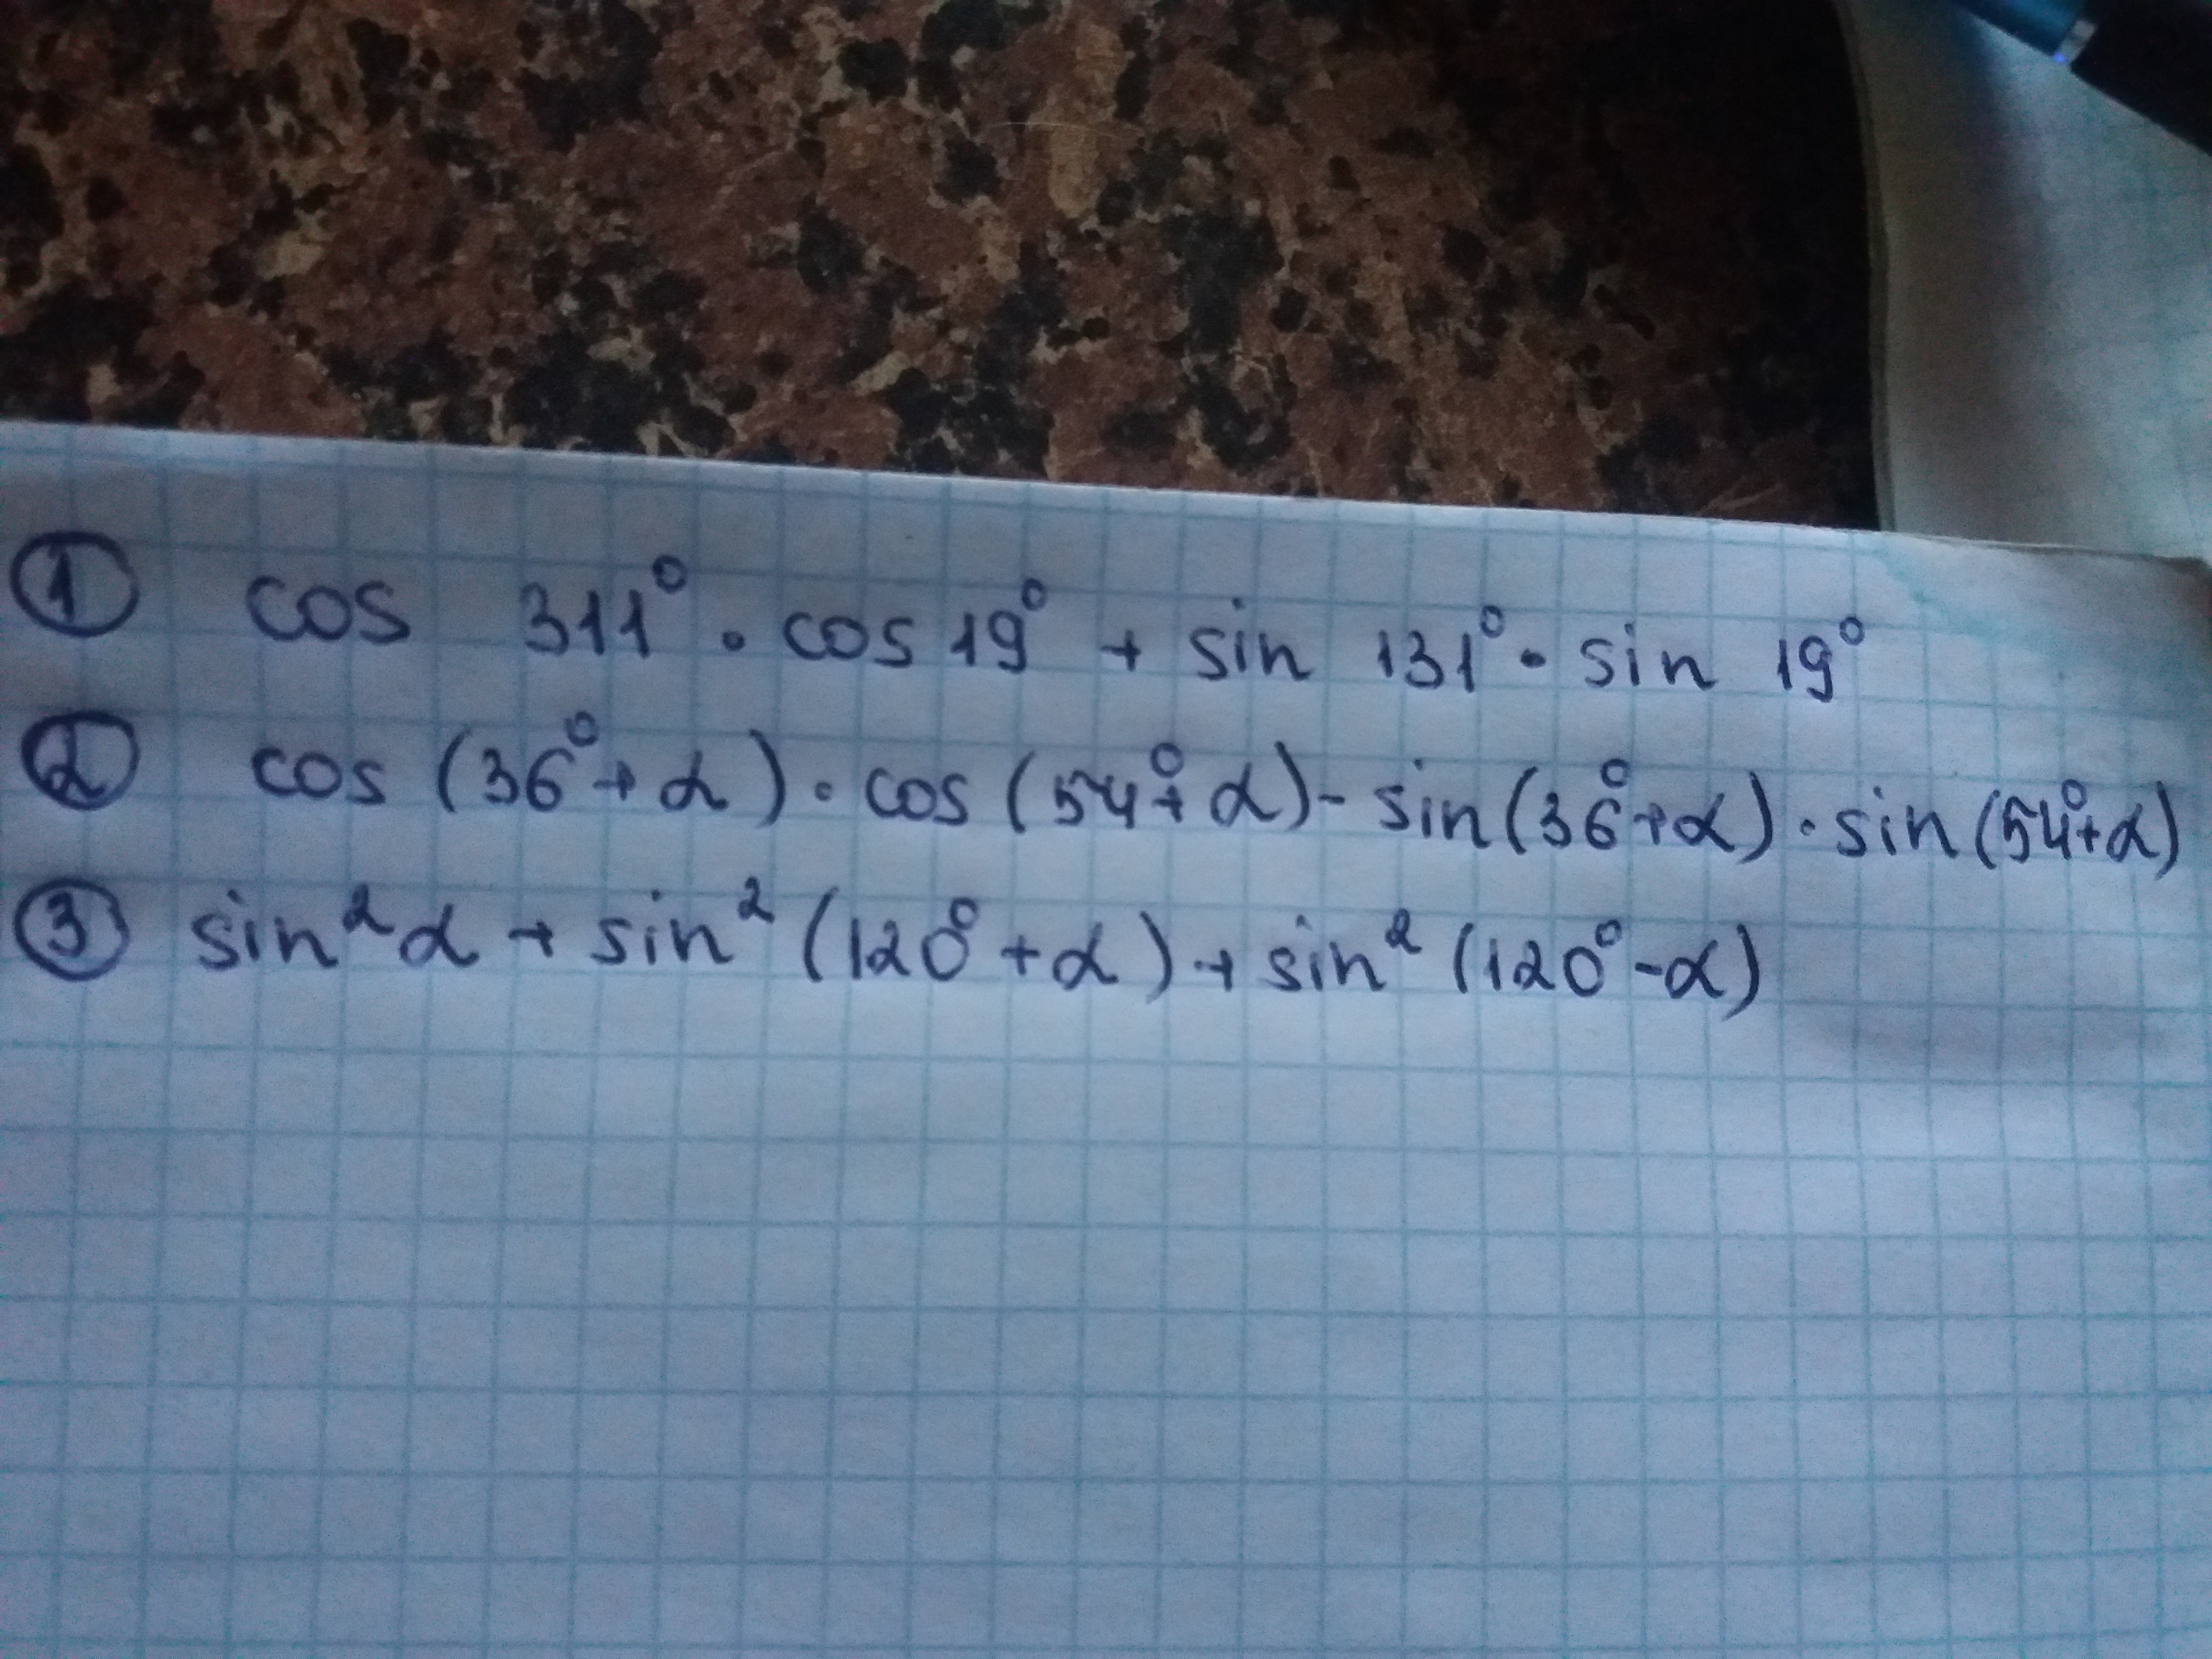 ① cos 311° · cos 19° + sin 131° · sin 19°
② cos (36° + α) · cos (54° + α) - sin (36° + α) · sin (54° + α)
③ sin² α + sin² (120° + α) + sin² (120° - α)